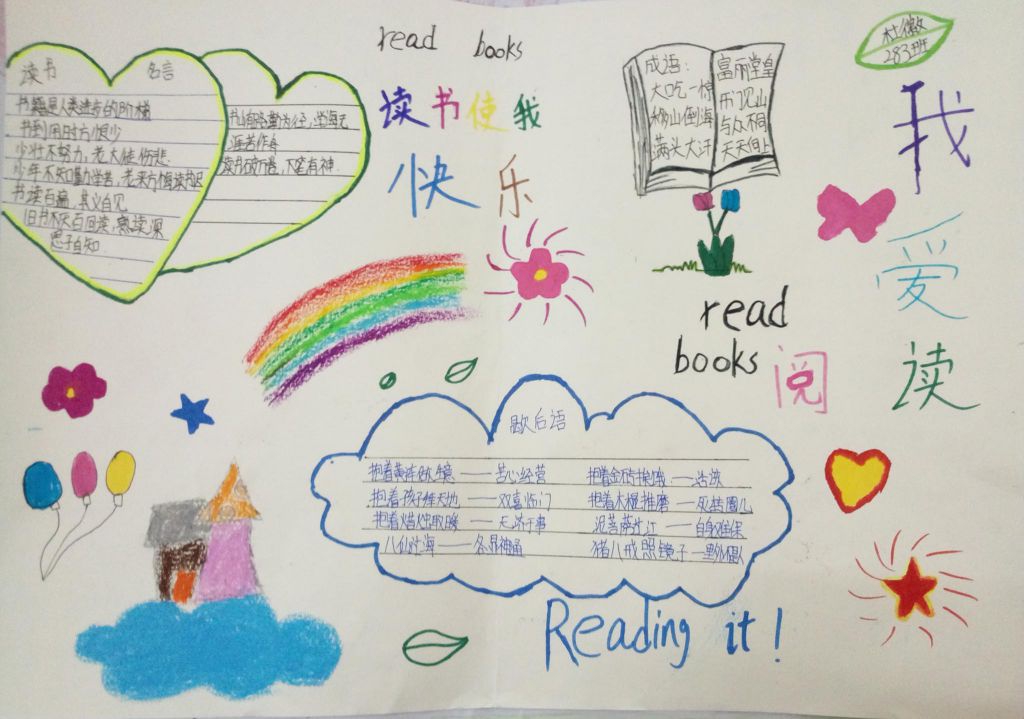 读书 名言
书籍是人类进步的阶梯
书到用时方恨少
少壮不努力，老大徒伤悲.
少年不知勤学苦，老来方悔读书迟
书读百遍，其义自见
旧书不厌百回读，熟读深
思子自知
书山有路勤为径，学海无
涯苦作舟
读书破万卷，下笔有神.
read books
读书使我
快乐
成语：
大吃一惊
移山倒海
满头大汗
富丽堂皇
开门见山
与众不同
天天向上
杜微
283班
我
爱
读
阅
read
books
歇后语
抱着黄连做生意——苦心经营 抱着金砖挨饿——活该
抱着孩子拜天地——双喜临门 抱着木棍推磨——死转圈儿
抱着蜡烛取暖——无济于事 泥菩萨过江——自身难保
八仙过海——各显神通 猪八戒照镜子—
Reading it!